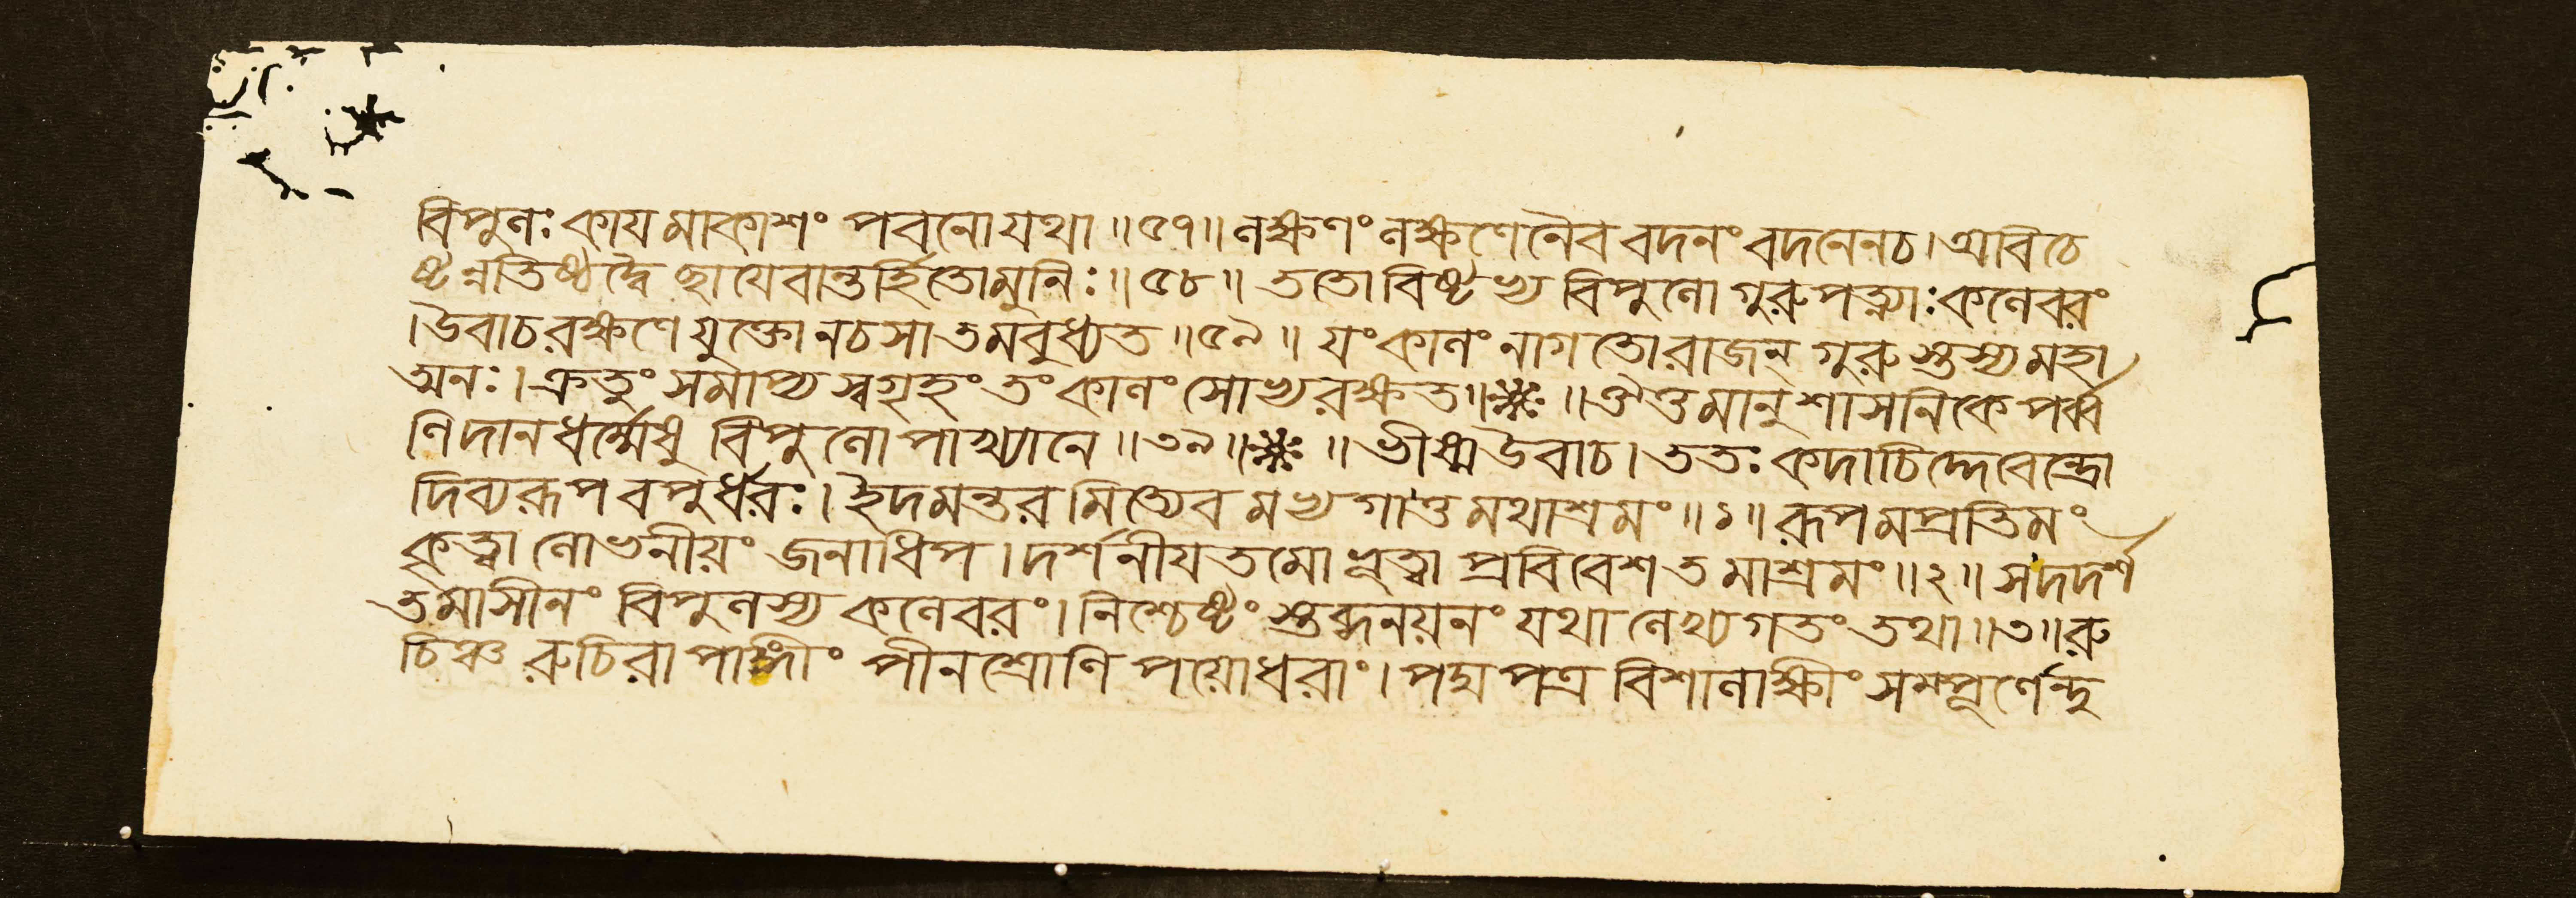 বিপুলঃ কায়মাকাশং পবনো যথা ॥৫৭॥ লক্ষণং লক্ষণেনৈব বদনং বদনেন চ। অবিচে
ষ্টন্নতিষ্ঠদ্বৈ ছায়েবান্তর্হিতো মুনিঃ ॥৫৮॥ ততো বিষ্টভ্য বিপুলো গুরুপত্ন্যাঃ কলেবরং
। উবাচ রক্ষণে যুক্তো ন চ সা তমবুধ্যত ॥৫৯॥ যং কালং নাগতো রাজন্ গুরুস্তস্য মহা
ত্মনঃ। ক্রতুং সমাপ্য স্বগৃহং তং কালং সোভ্যরক্ষত ॥ ॥ ঔত্তমানুশাসনিকে পর্ব্ব
ণি দানধর্ম্মেষু বিপুলোপাখ্যানে ॥৩৯॥ ॥ ভীষ্ম উবাচ। ততঃ কদাচিদ্দেবেন্দ্রো
দিব্যরূপবপুর্ধরঃ। ইদমন্তরমিত্যেবমভ্যগাত্তমথাশ্রমং ॥১॥ রূপমপ্রতিমং
কৃত্বা লোভনীয়ং জনাধিপ। দর্শনীয়তমো ভূত্বা প্রবিবেশ তমাশ্রমং ॥২॥ স দদর্শ
তমাসীনং বিপুলস্য কলেবরং। নিশ্চেষ্টং স্তব্ধনয়নং যথা লেখ্যগতং তথা ॥৩॥ রু
চিঞ্চ রুচিরাপাঙ্গীং পীনশ্রোণিপয়োধরাং। পদ্মপত্রবিশালাক্ষীং সম্পূর্ণেন্দু